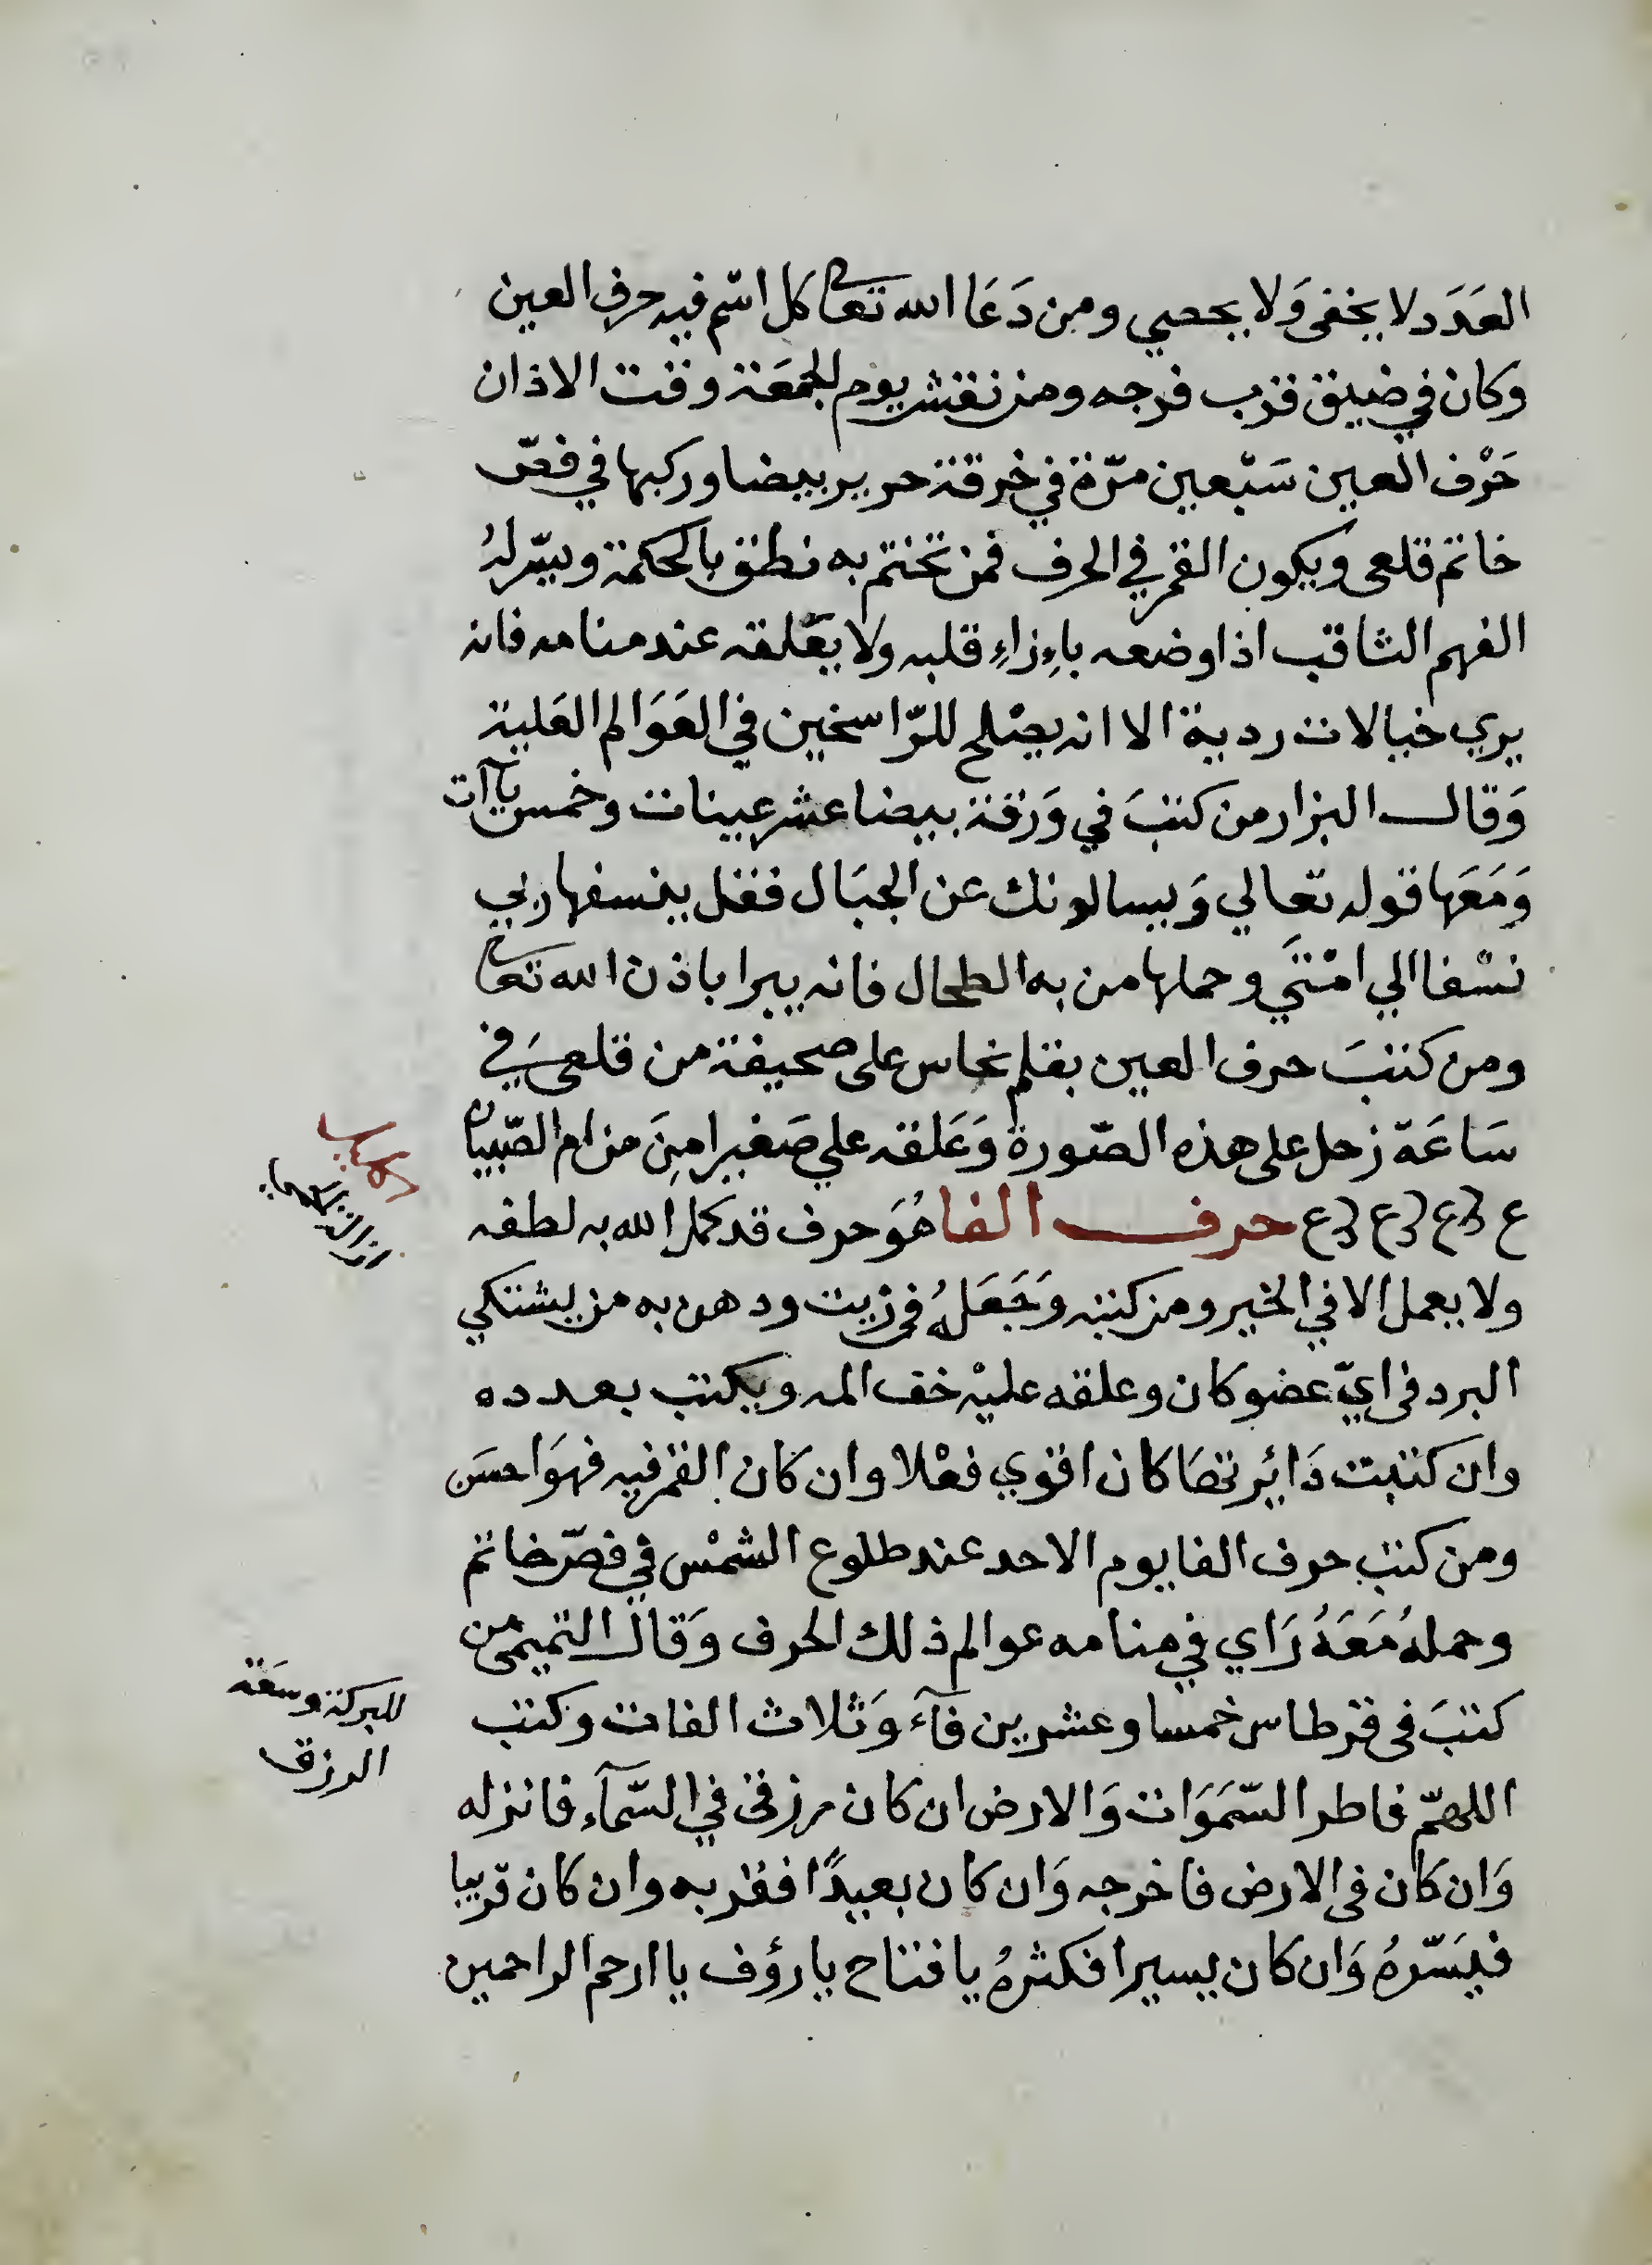 العَدَد لا يخفى وَلا يحصي ومن دَعَا الله تعا كل اسّم فيه حرف العين
وكان في ضيق قرب فرجه ومن نقش يوم الجمعَة وقت الاذان
حَرْف العين سَبْعين مرّة في خرقة حرير بيضا وركبها في فصّ
خاتم قلعى ويكون القمر في الحرف فمن تختم به نطق بالحكمة ويسّر لهُ
الفهم الثاقب اذا وضعه باِزاءِ قلبه ولا يعَلقه عند منامه فانه
يري خيالات ردية الا انه يصْلح للرّاسخين في العَوَالم العَلية
وَقال البزار من كتبَ في وَرقة بيضا عشر عينات وخمس ياآت
وَمَعَها قوله تعالي وَيسالونك عن الجبَال فقل ينسفها ربي
نسْفا الي امْتَي وحملها من به الطحال فانه يبرا باذن الله تعا
ومن كتبَ حرف العين بقلم نحاس على صحيفة من قلعىَ في
سَاعَة زحل على هذه الصّورة وَعَلقه علي صَغير امِنَ من ام الصّبيان
ع ع3 ع3 ع3 ع حرف الفا هُوَ حرف قد كمل الله به لطفه
ولا يعمل الا في الخير ومن كتبه وَجَعَلهُ في زيت ودهن به من يشتكي
البرد في ايّ عضو كان وعلقه عليْه خف المه ويكتب بعدده
وان كتبت دَائر تصَا كان اقوي فعْلا وان كان القمر فيه فهوَ احسَن
ومن كتب حرف الفا يوم الاحد عند طلوع الشمْس في فصّ خاتم
وحملهُ مَعَهُ رَاي في منامه عوالم ذلك الحرف وَقال التميمى من
كتبَ في قرطاس خمسا وعشرين فآءَ وَثلاث الفات وكتب
اللهمّ فاطر السّمَوَات وَالارض ان كان رزقى في السّمآء فانزله
وَان كان في الارض فاخرجه وَان كان بعيدًا فقربه وان كان قريبا
فيَسّرهُ وَان كان يسيرا فكثرهُ يا فتاح يا رؤف يا ارحم الراحمين
للبركة وسَعَة
الرزق